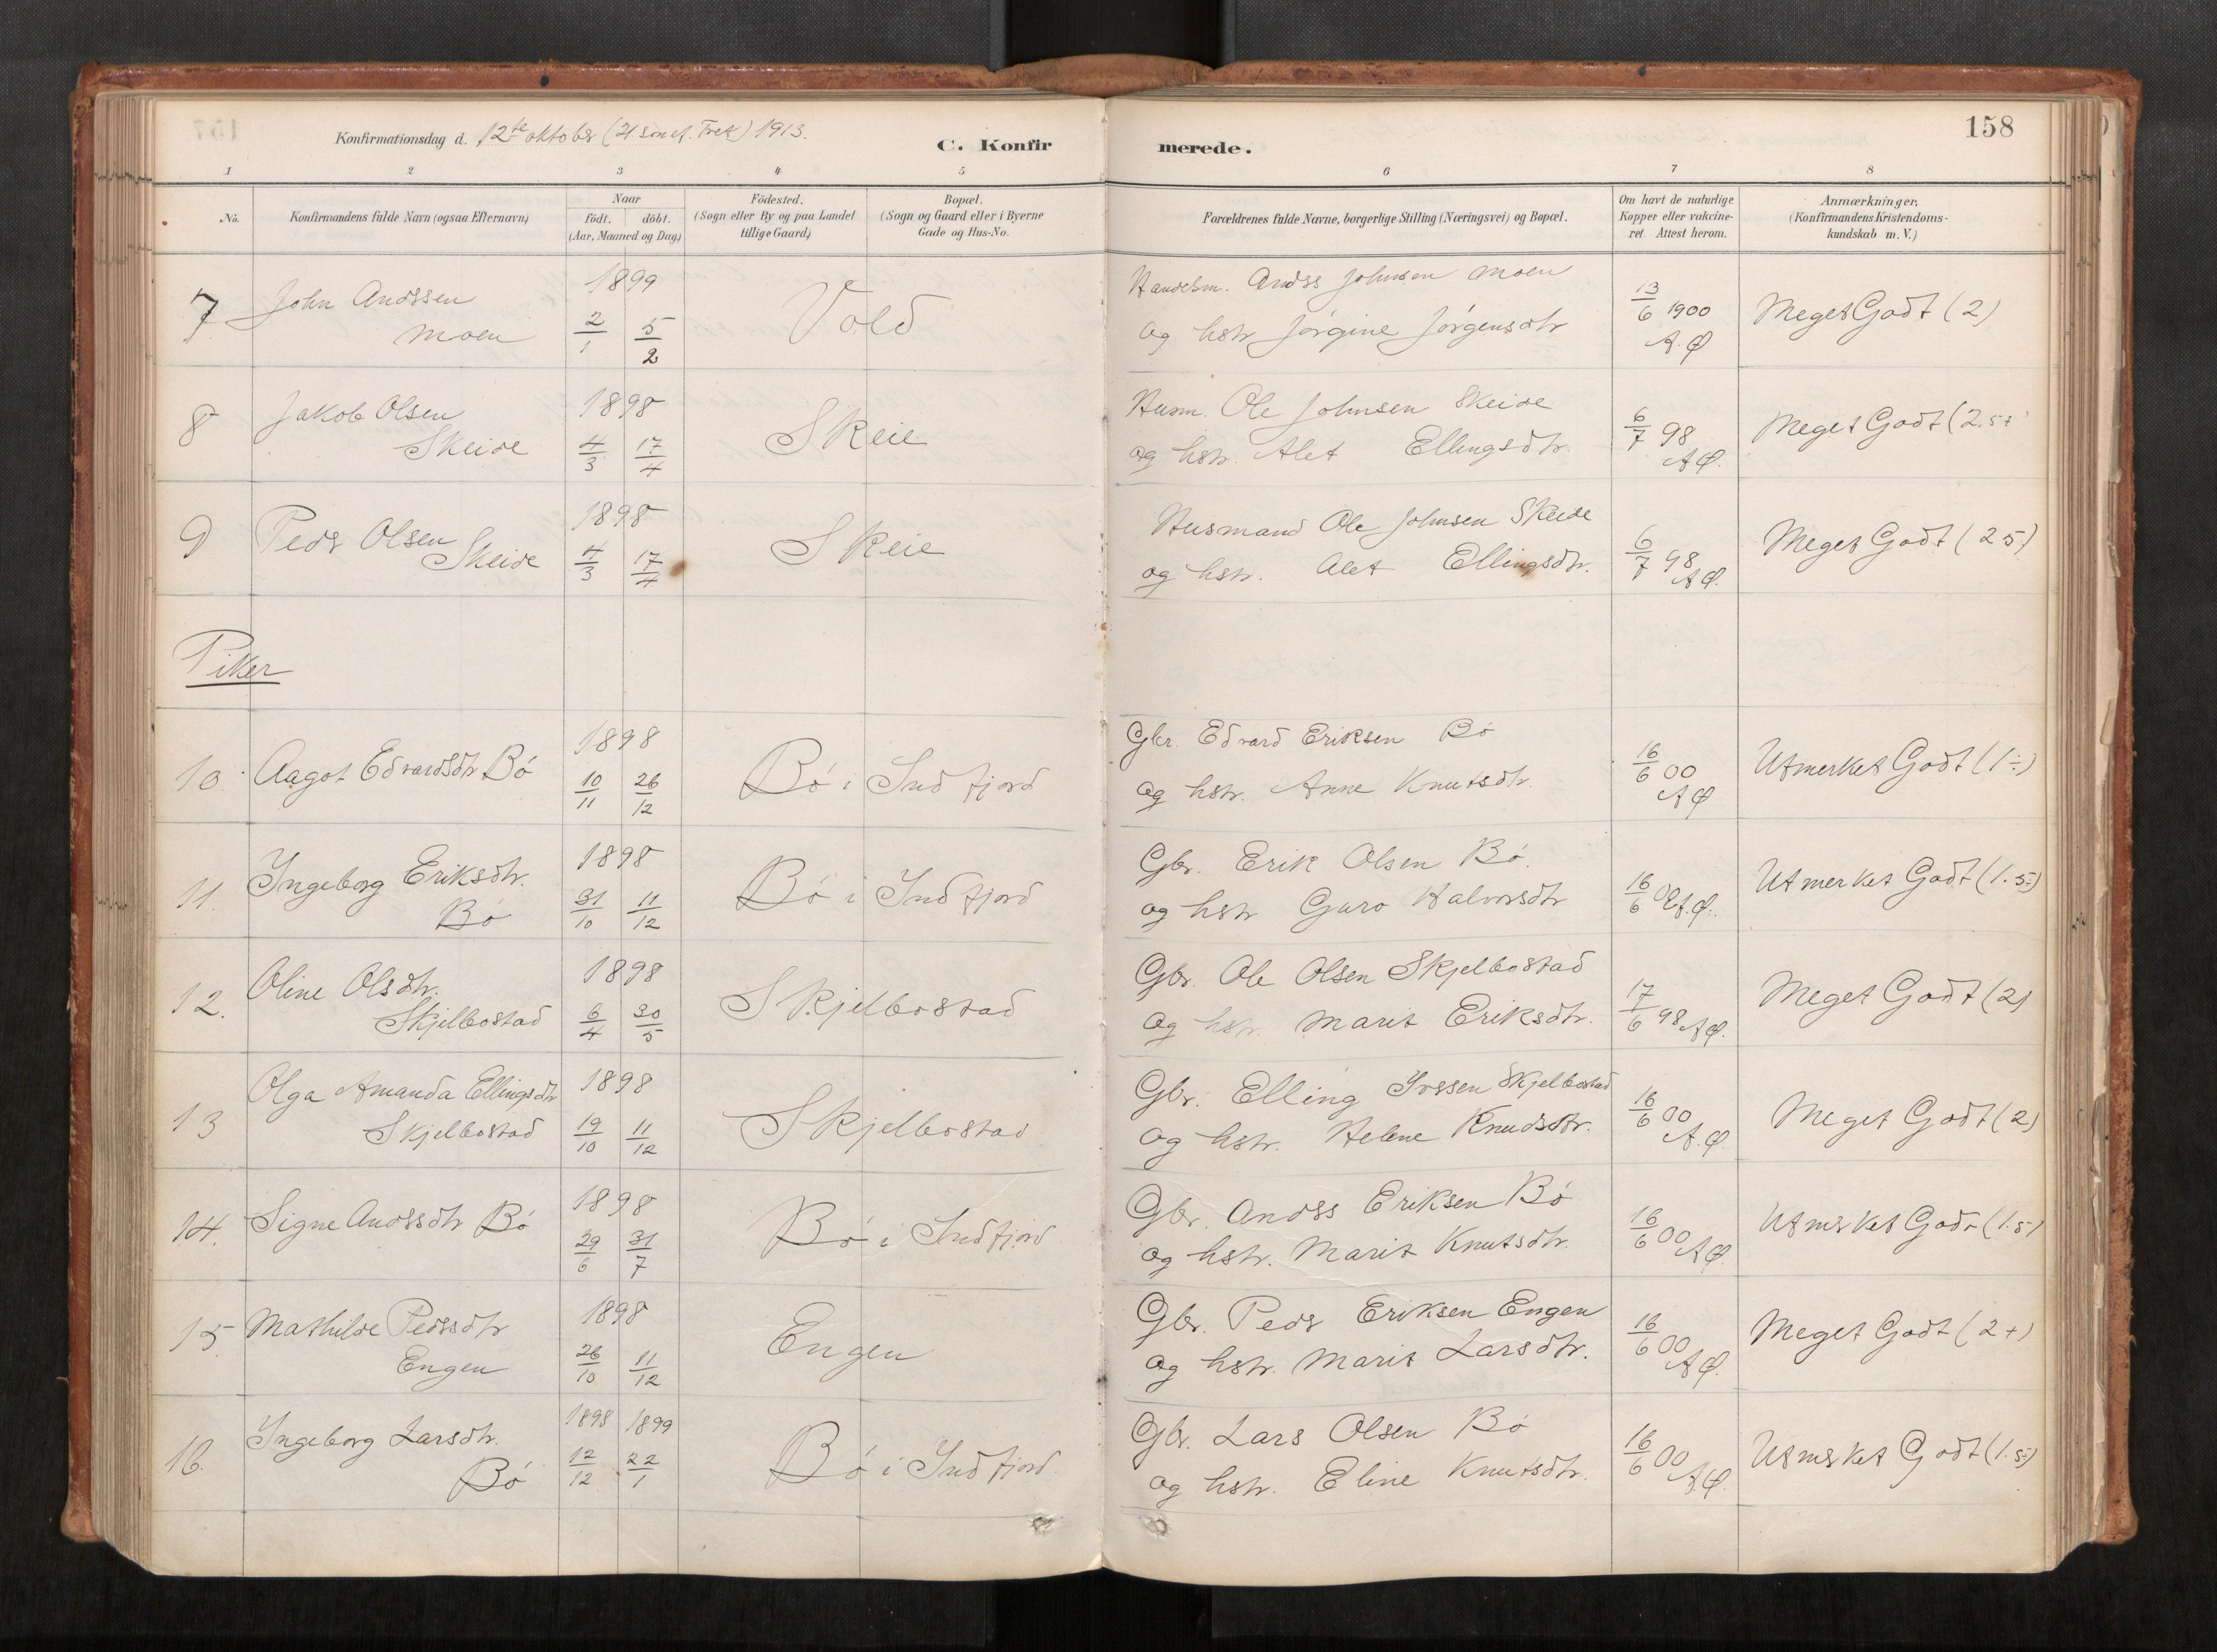 158
Konfirmationsdag d. 12te oktober (21 sön ef. Tref) 1913.
C. Konfirmerede.
1 2 3 4 5 6 7 8
No.
Konfirmandens fulde Navn (ogsaa Efternavn)
Naar
födt. döbt.
(Aar, Maaned og Dag)
Födested.
(Sogn eller By og paa Landet
tillige Gaard)
Bopæl.
(Sogn og Gaard eller i Byerne
Gade og Hus-No.
Forældrenes fulde Navne, borgerlige Stilling (Næringsvei) og Bopæl.
Om havt de naturlige
Kopper eller vakcine-
ret. Attest herom.
Anmærkninger.
(Konfirmandens Kristendoms-
kundskab m. V.)
7 John Andssen
Moen
1899
2/1 5/2
Vold
Handelsm. Andss Johnsen Moen
og hstr Jörgine Jörgensdtr
13/6 1900
A. Ø
Meget Godt (2)
8 Jakob Olsen
Skeide
1898
4/3 17/4
Skeie
Husm. Ole Johnsen Skeide
og hstr. Alet Ellingsdtr.
6/7 98
A Ø.
Meget Godt (2.5+
9 Peds Olsen
Skeide
1898
4/3 17/4
Skeie
Husmand Ole Johnsen Skeide
og hstr. Alet Ellingsdtr.
6/7 98
A Ø.
Meget Godt (2 5)
Piker
10. Aagot Edvardsdtr Bö
1898
10/11 26/12
Bö i Indfjord
Gbr. Edvard Eriksen Bö
og hstr. Anne Knutsdtr.
16/6 00
A Ø
Utmerket Godt (1÷)
11. Ingeborg Eriksdtr.
Bö
1898
31/10 11/12
Bö i Indfjord
Gbr. Erik Olsen Bö.
og hstr Guro Halvorsdtr
16/6 00 A. Ø.
Utmerket Godt (1.5÷)
12. Oline Olsdtr.
Skjelbostad
1898
6/4 30/5
Skjelbostad
Gbr. Ole Olsen Skjelbostad
og hstr. Marit Eriksdtr.
17/6 98 A Ø.
Meget Godt (2)
13 Olga Amanda Ellingsdtr
Skjelbostad
1898
19/10 11/12
Skjelbostad
Gbr. Elling Ivssen Skjelbostad
og hstr. Helene Knudsdtr.
16/6 00
A. Ø
Meget Godt (2)
14. Signe Andssdtr Bö
1898
29/6 31/7
Bö i Indfjord
Gbr. Andss Eriksen Bö
og hstr. Marit Knutsdtr.
16/6 00 A Ø.
Utmsket Godt (1.5)
15. Mathilde Pedssdtr
Engen
1898
26/10 11/12
Engen
Gbr. Peds Eriksen Engen
og hstr. Marit Larsdtr.
16/6 00
A Ø.
Meget Godt (2+)
16. Ingeborg Larsdtr.
Bö
1898 1899
12/12 22/1
Bö i Indfjord.
Gbr. Lars Olsen Bö
og hstr. Eline Knutsdtr.
16/6 00
A Ø.
Utmsket Godt (1.5÷)